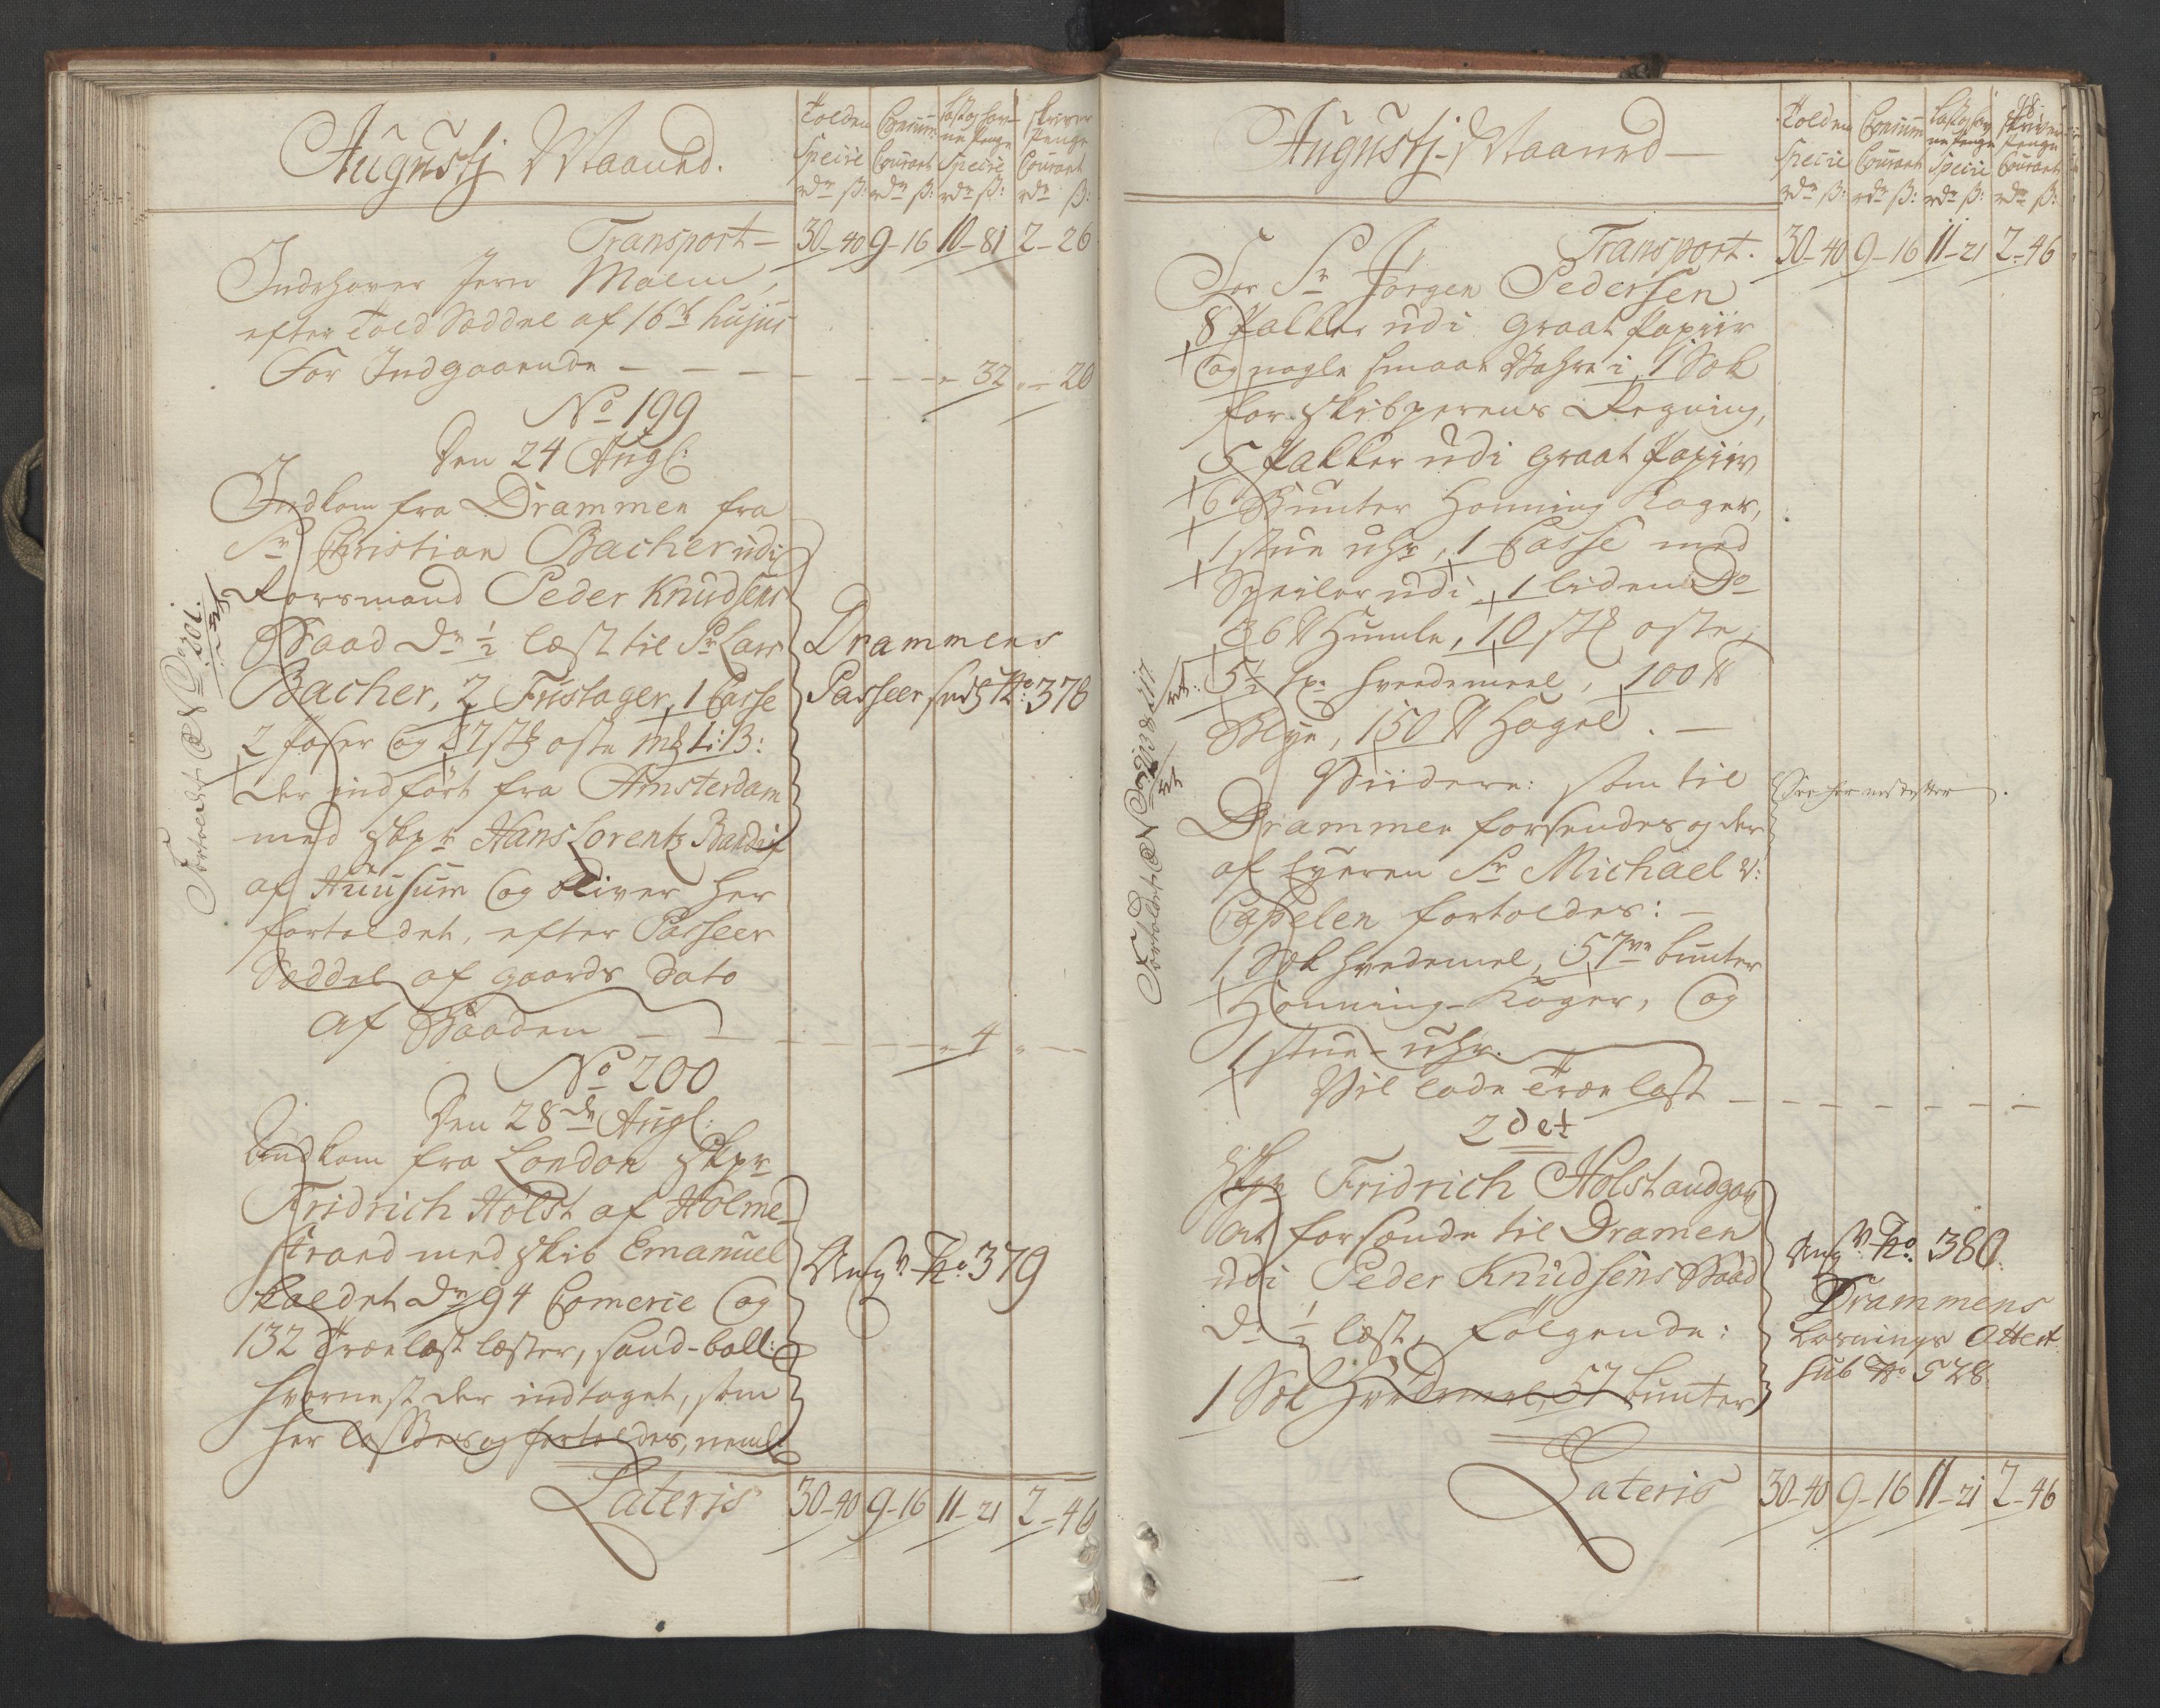 Augustj Maaned.
Tolden Specie rdr ß:
Consum: Courant rdr ß:
Lastog hav= ne Penge Specie rdr ß:
Skriver Penge Courant rdr ß:
Transport — 30-40 9-16 10-81 2-26
Indehaver Jern Malm,
efter Told Seddel af 16de hujus
For Indgaaende — 32 — 20
No 199
Den 24 Aug:
Indkom fra Drammen fra
Sr Christian Bacher udi
Rorsmand Peder Knudsens
Baad Dr ½ læst til Sr Lars
Bacher, 2 Fustager, 1 Casse
2 Poser og 27 st: oste mk L: B:
der indført fra Amsterdam
med Skpr Hans Lorentz Bandix
af Huusum og bliver her
fortoldet, efter Passeer
Seddel af gaards dato
af Baaden — 4 —
Drammens
Passeer sedl No: 378
Fortoldet @ No 201.
No 200
Den 28de Aug:
Indkom fra London Skpr
Fridrich Holst af Holme-
strand med Skib Emanuel
kaldet Dr 94 Comerce og
132 Trælast læster, sand-ball:
hvornest der indtaget, som
her losses og fortoldes, neml:
Angv: No: 379
Lateris 30-40 9-16 11-21 2-46
98
Augustj Maaned
Tolden Specie rdr ß:
Consum Courant rdr ß:
Lastog hav ne Penge Specie rdr ß:
Skriver Penge Courant rdr ß:
Transport. 30-40 9-16 11-21 2-46
For Sr Jørgen Pedersen
8 Pakker udi graat Papiir
og nogle smaae Vahre i 1 Sæk
for Skibperens Regning,
5 Pakker udi graat Papiir
6 Bunter Honning Kager,
1 stue uhr, 1 Casse med
Speiler udi, 1 liden Do
36 ℔ Humle, 10 st: oste,
5½ Spr hvedemeel, 100 ℔
Blye, 150 ℔ Hagel. —
Viidere: som til
Drammen forsendes og der
af Eyeren Sr Michael v:
Capelen fortoldes: —
1 Sæk hvedemel, 57ve bunter
Honning-Kager, og
1 stue-uhr.
Vil lade Trælast —
See her nest efter.
Fortoldet @ No
2det
Skpr Fridrich Holst andgav
at forsende til Dramen
udi Peder Knudsens Baad
Dr ½ læst, følgende:
1 Sæk Hvedemel, 57 bunter
Angv: No: 380.
Drammens
Losnings Attest
sub No 528
Lateris 30-40 9-16 11-21 2-46